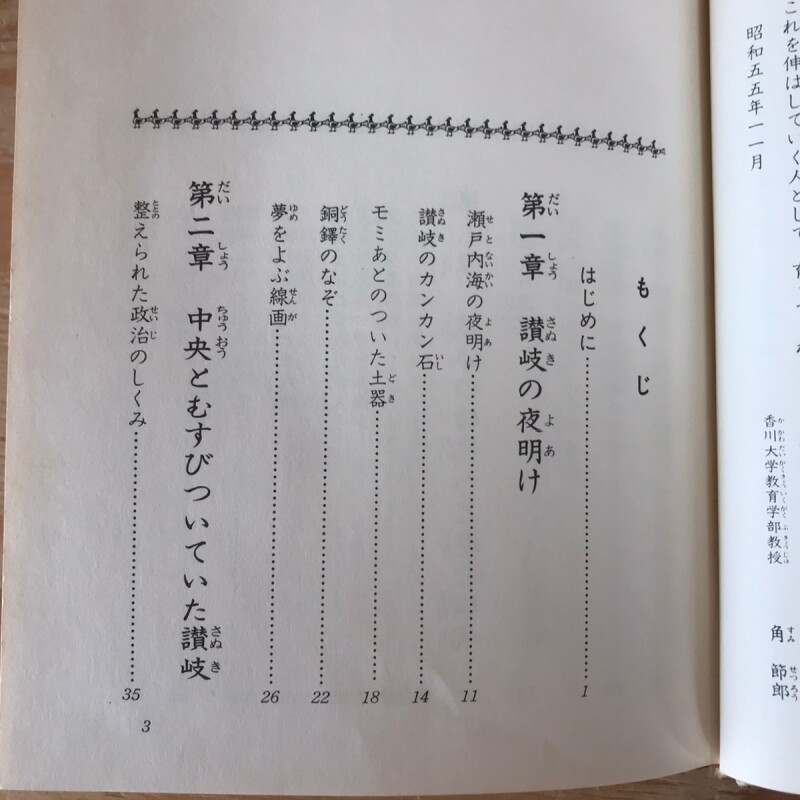 これを伸ばしていく人として、育って
昭和五五年一一月
香川大学教育学部教授
角 節郎
もくじ
はじめに……1
第一章 讃岐の夜明け
瀬戸内海の夜明け……11
讃岐のカンカン石……14
モミあとのついた土器……18
銅鐸のなぞ……22
夢をよぶ線画……26
第二章 中央とむすびついていた讃岐
整えられた政治のしくみ……35
3